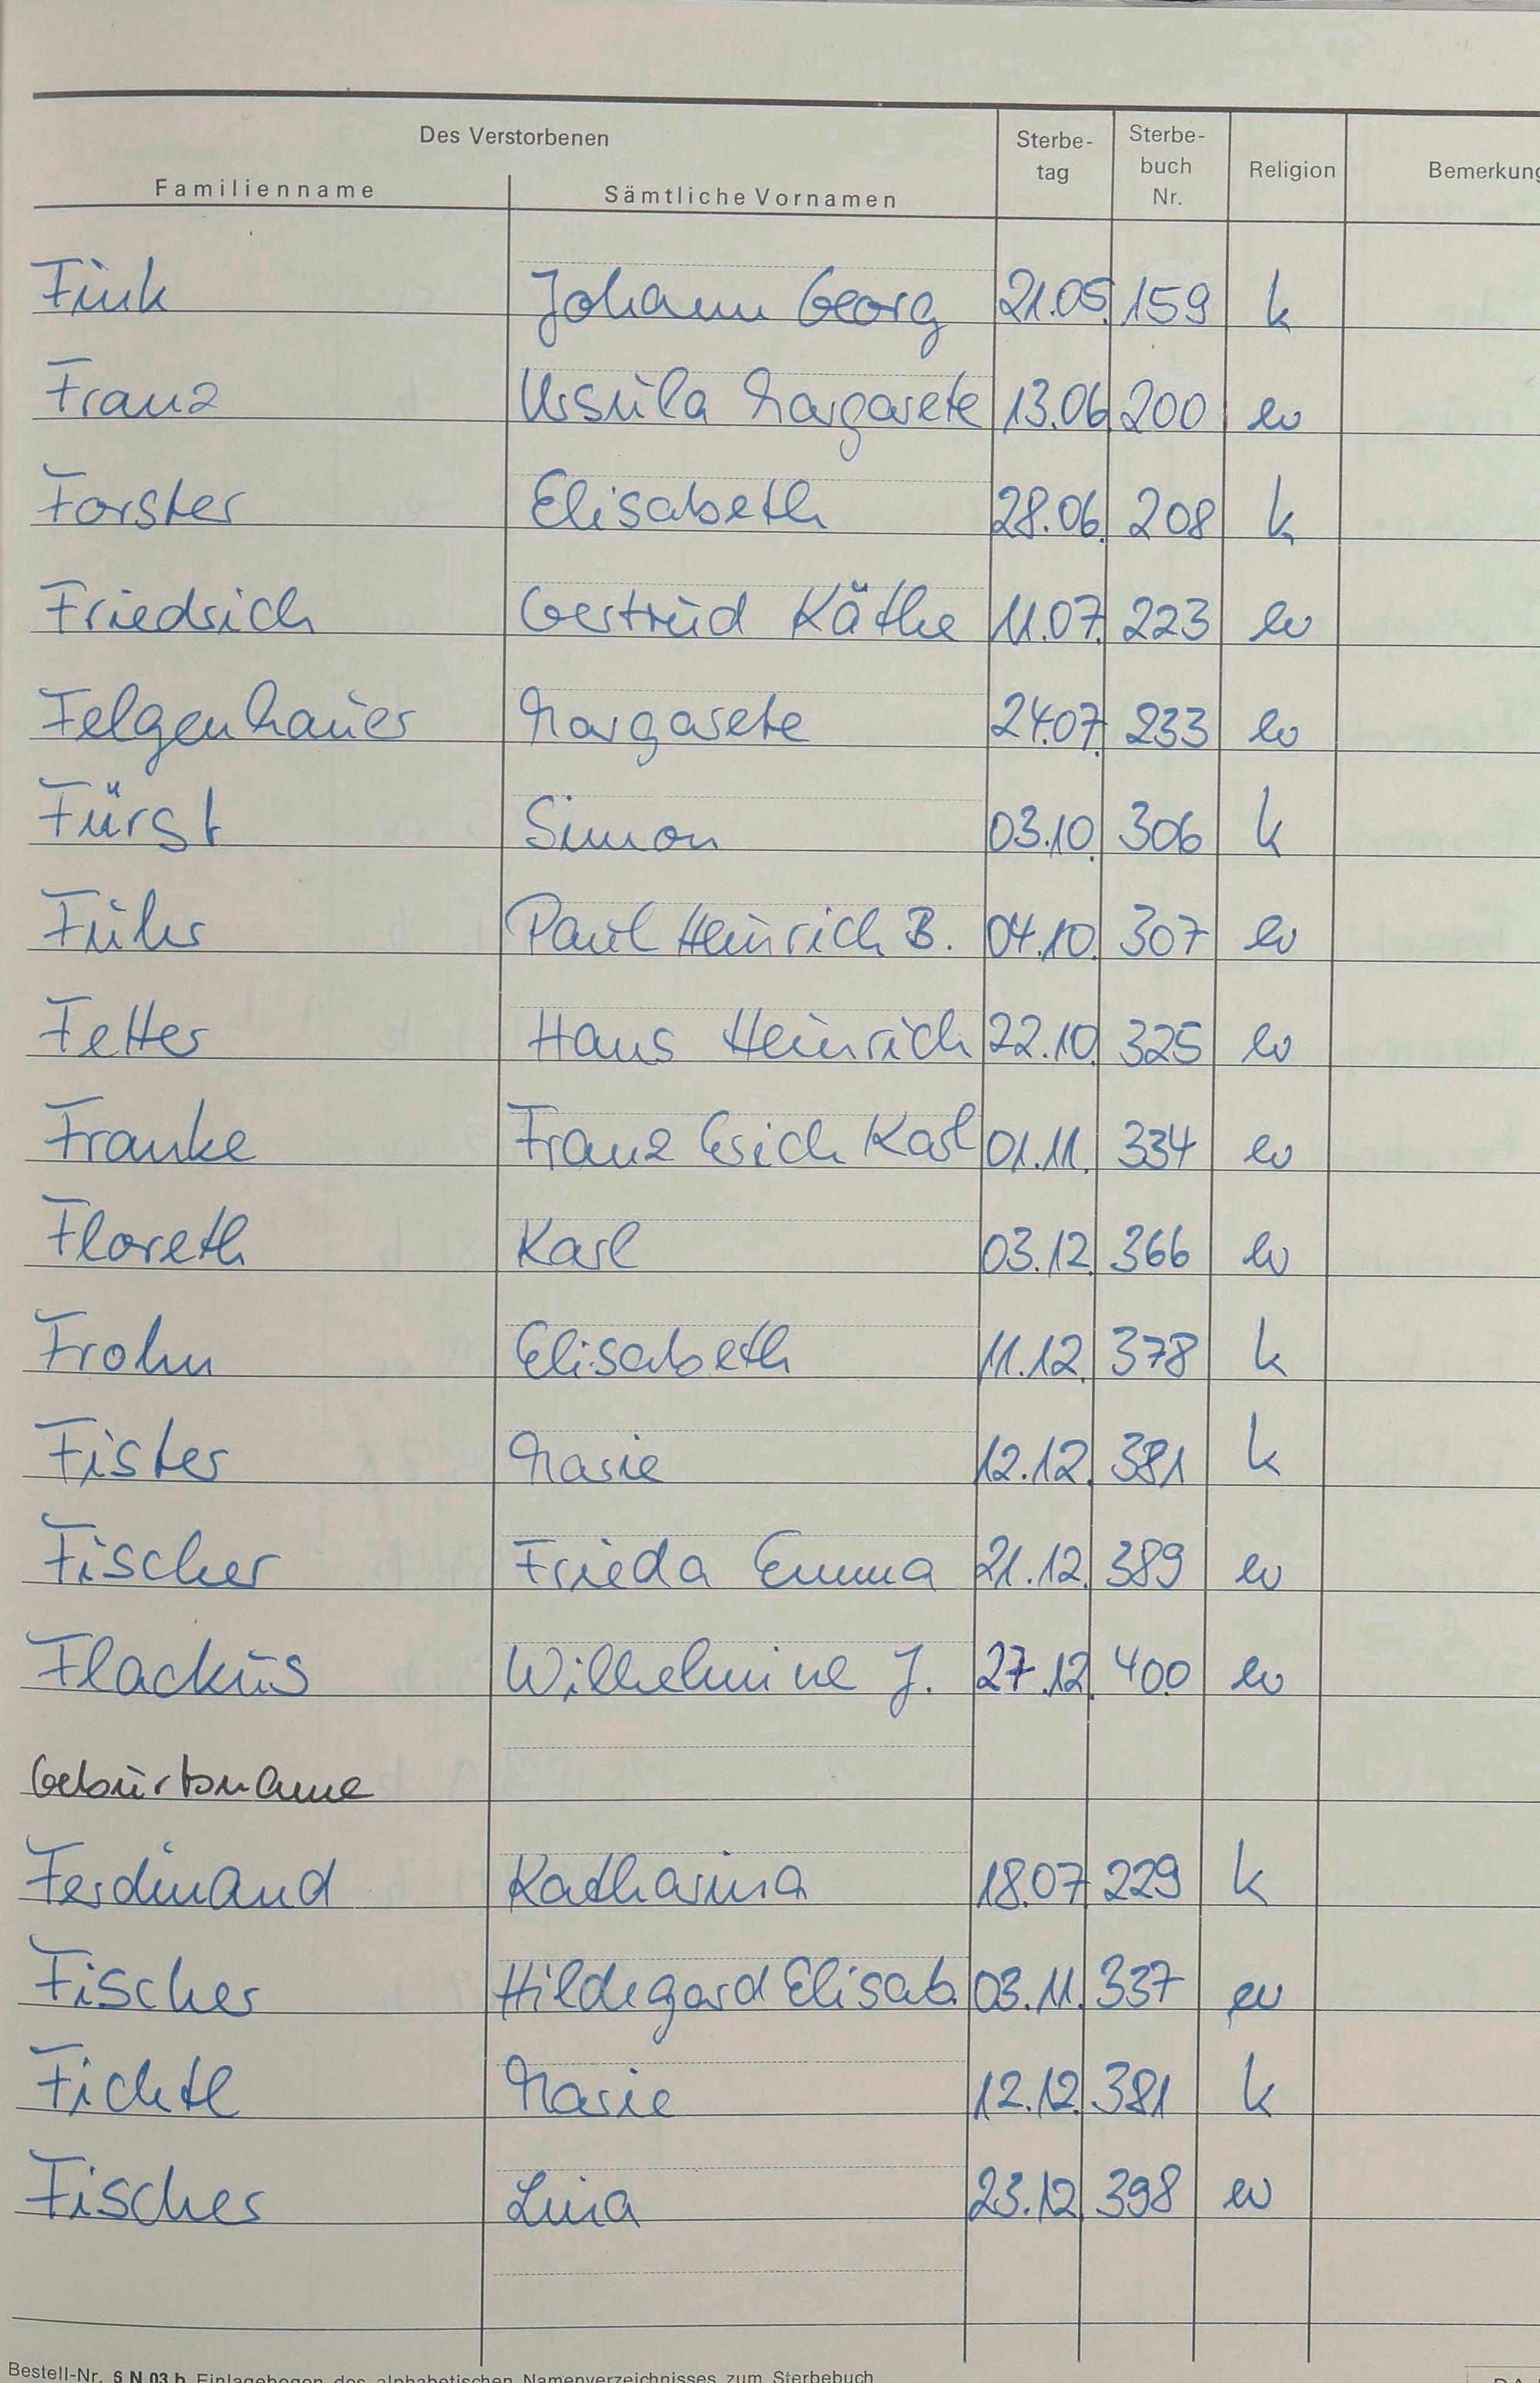 Des Verstorbenen
Familienname Sämtliche Vornamen Sterbe-tag Sterbe-buch Nr. Religion Bemerkung
Fink Johann Georg 21.05. 159 k
Franz Ursula Margarete 13.06 200 ev
Forster Elisabeth 28.06. 208 k
Friedrich Gertrud Käthe 11.07. 223 ev
Felgenhauer Margarete 24.07. 233 ev
Fürst Simon 03.10. 306 k
Führ Paul Heinrich B. 04.10. 307 ev
Fetter Hans Heinrich 22.10. 325 ev
Franke Franz Erich Karl 01.11. 334 ev
Floreth Karl 03.12. 366 ev
Frohn Elisabeth 11.12. 378 k
Fister Marie 12.12. 381 k
Fischer Frieda Emma 21.12. 389 ev
Flackus Wilhelmine J. 27.12. 400 ev
Geburtsname
Ferdinand Katharina 18.07 229 k
Fischer Hildegard Elisab. 03.11. 337 ev
Fichtl Marie 12.12. 381 k
Fischer Lina 23.12. 398 ev
Bestell-Nr. 6 N 03 b Einlagebogen des alphabetischen Namenverzeichnisses zum Sterbebuch